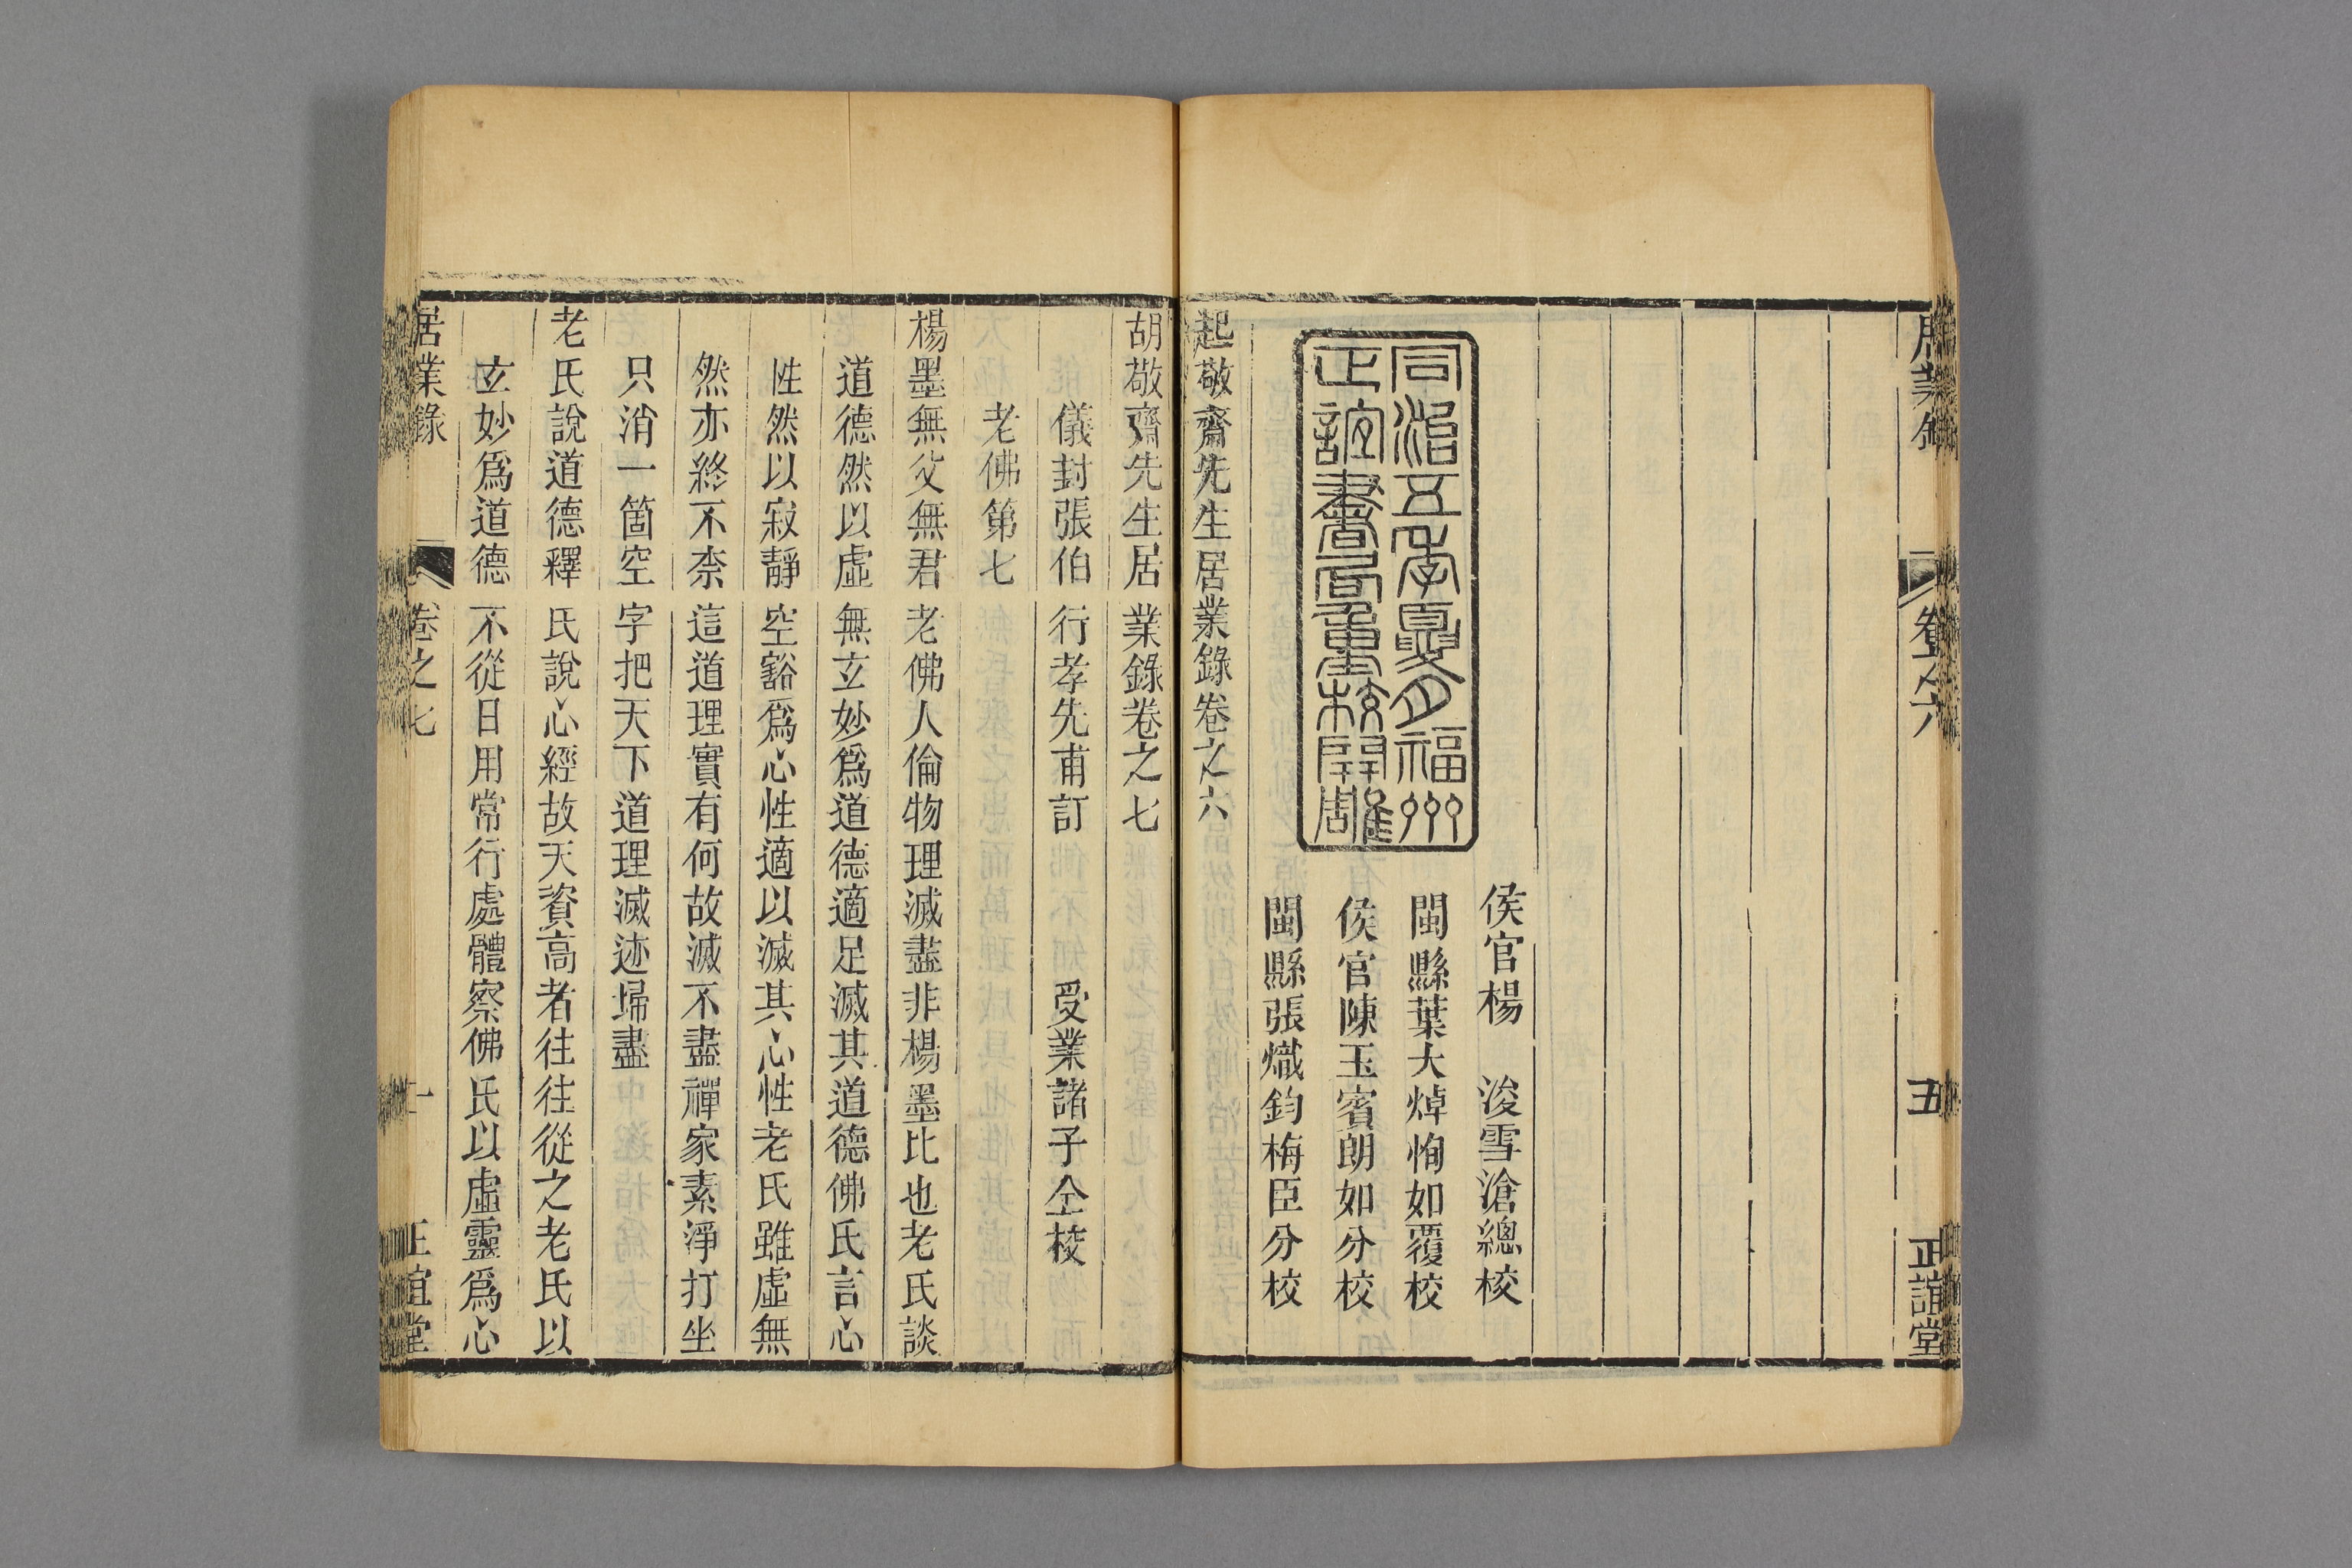 居業錄
卷之六
五
正誼堂
侯官楊　浚雪滄總校
閩縣葉大焯恂如覆校
侯官陳玉賓朗如分校
閩縣張熾鈞梅臣分校
同治五年夏月福州
正誼書局重校開雕
起敬齋先生居業錄卷之六
胡敬齋先生居業錄卷之七
儀封張伯行孝先甫訂　受業諸子仝校
老佛第七
楊墨無父無君老佛人倫物理滅盡非楊墨比也老氏談
道德然以虛無玄妙爲道德適足滅其道德佛氏言心
性然以寂靜空豁爲心性適以滅其心性老氏雖虛無
然亦終不柰這道理實有何故滅不盡禪家素淨打坐
只消一箇空字把天下道理滅迹埽盡
老氏說道德釋氏說心經故天資高者往往從之老氏以
玄妙爲道德不從日用常行處體察佛氏以虛靈爲心
居業錄
卷之七
一
正誼堂